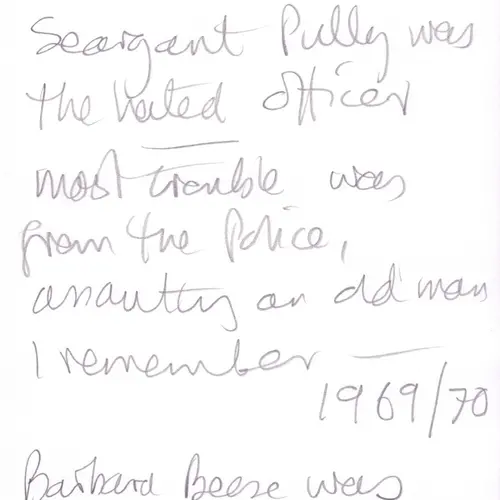 Seargant Pully was
the hated officer
most trouble was
from the Police,
assaulting an old man
I remember —
1969/70
Barbara Beese was